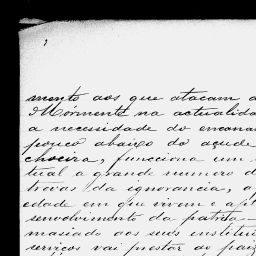 mento aos que atacam a
Mórmente na actualida
a necessidade do encana
pouco abaixo do açude
choeira, funcciona um
tual a grande numero d
trevas da ignorancia, a
edade em que vivem e apt
senvolvimento da patria
masiado aos seus institui
serviços vai prestar ao paiz